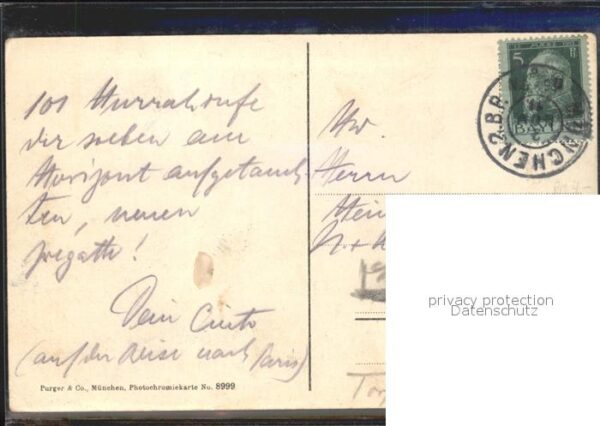 101 Hurrahrufe
der soeben am
Horizont aufgetauch-
ten, neuen
Fregatte!
Dein
(auf der Reise nach Paris)
Purger & Co., München, Photochromiekarte No. 8999
5
MÜNCHEN 2. B.P.
BAY
Hw.
Herrn
privacy protection
Datenschutz